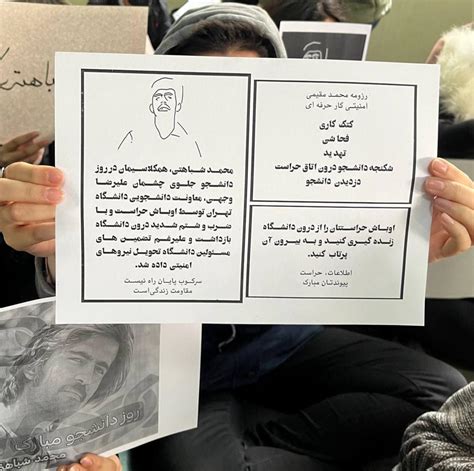 محمد شباهتی، همکلاسیمان در روز
دانشجو جلوی چشمان علیرضا
وجهی، معاونت دانشجویی دانشگاه
تهران توسط اوباش حراست و با
ضرب و شتم شدید درون دانشگاه
بازداشت و علیرغم تضمین های
مسئولین دانشگاه تحویل نیروهای
امنیتی داده شد.
سرکوب پایان راه نیست
مقاومت زندگی‌است
رزومه محمد مقیمی
امنیتی کار حرفه ای
کتک کاری
فحاشی
تهدید
شکنجه دانشجو درون اتاق حراست
دزدیدن دانشجو
اوباش حراستتان را از درون دانشگاه
زنده گیری کنید و به بیرون آن
پرتاب کنید.
اطلاعات، حراست
پیوندتان مبارک
روز دانشجو مبارک
محمد شباهتی